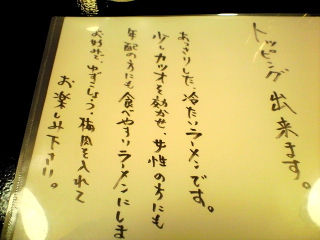 トッピング出来ます。
あっさりした、冷たいラーメンです。
少しカツオを効かせ、女性の方にも
年配の方にも食べやすいラーメンにしま
お好みで、ゆずこしょう、梅肉を入れて
お楽しみ下さい!!。